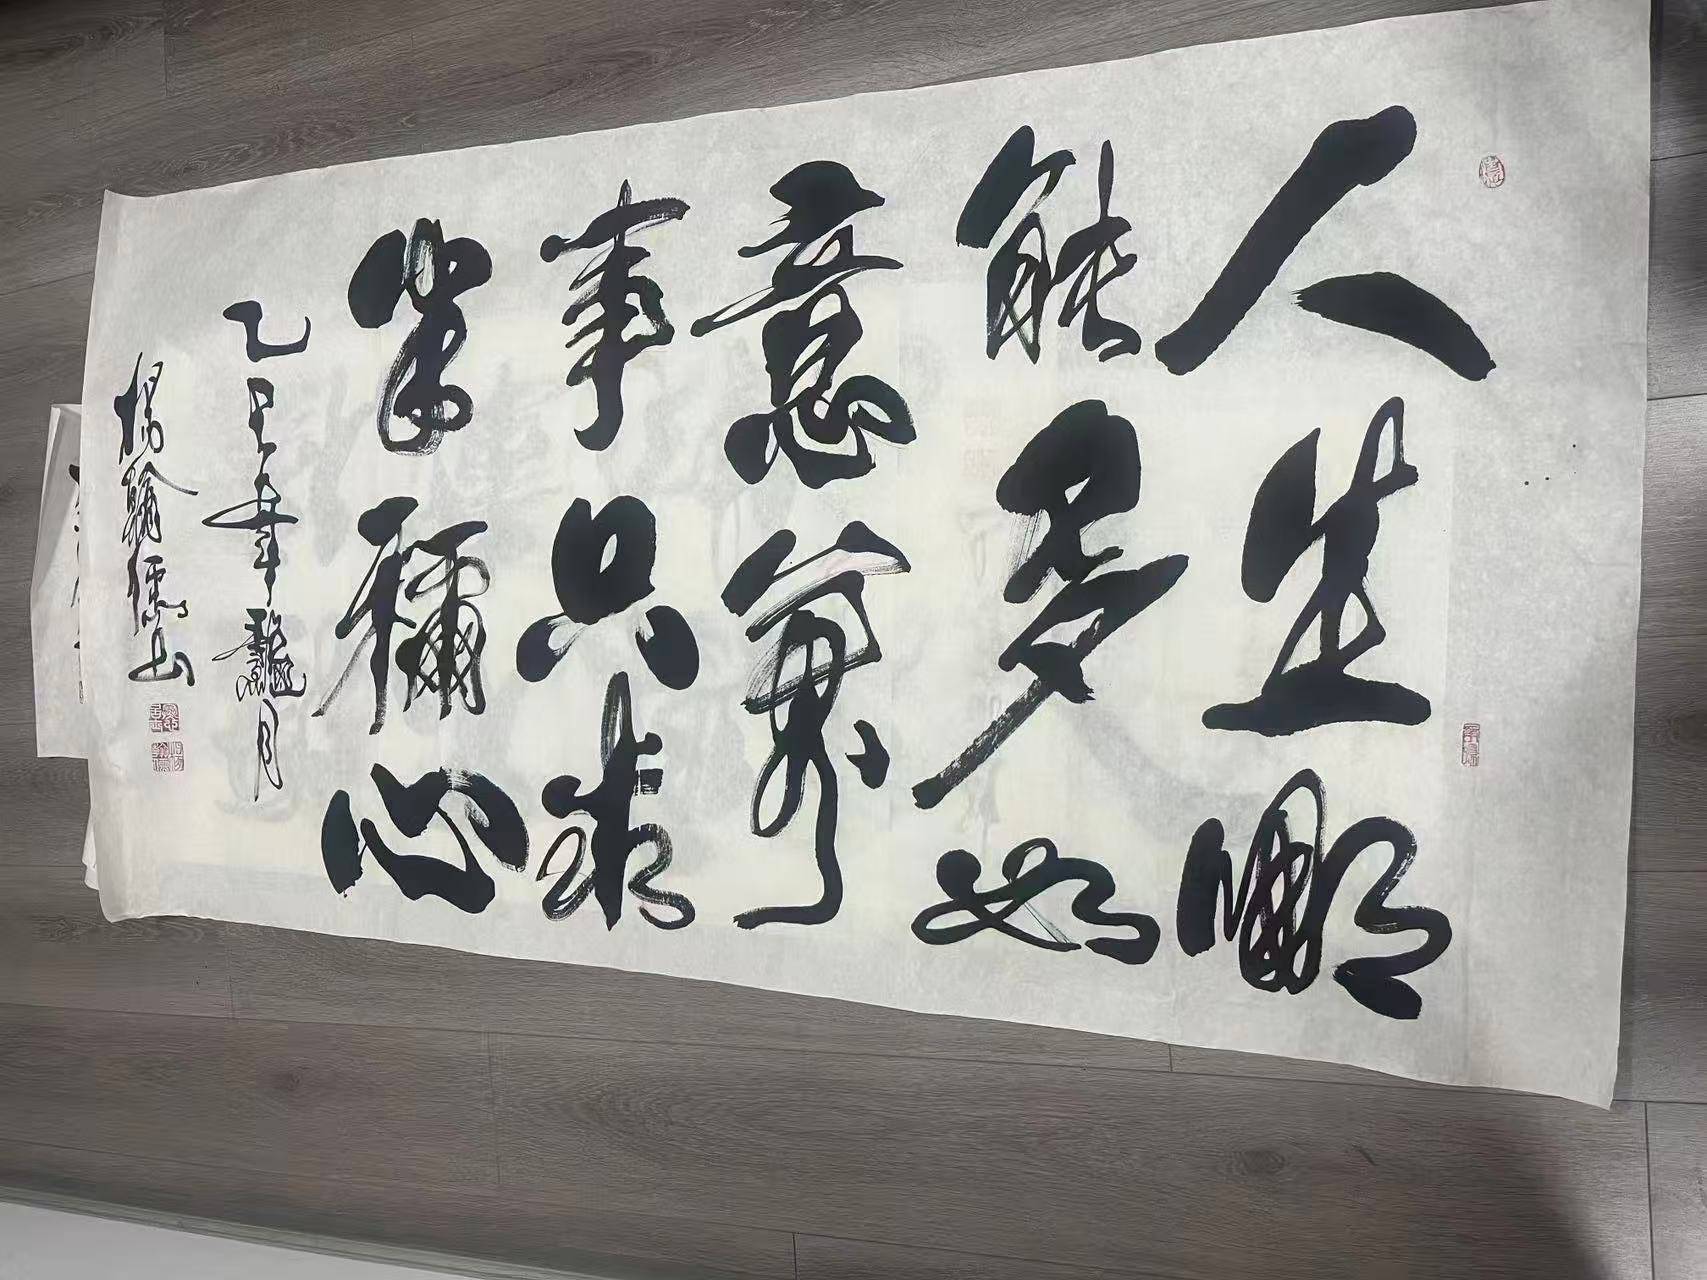 人生哪
能多如
意萬
事只求
半稱心
乙巳年龍月
楊翰儒書